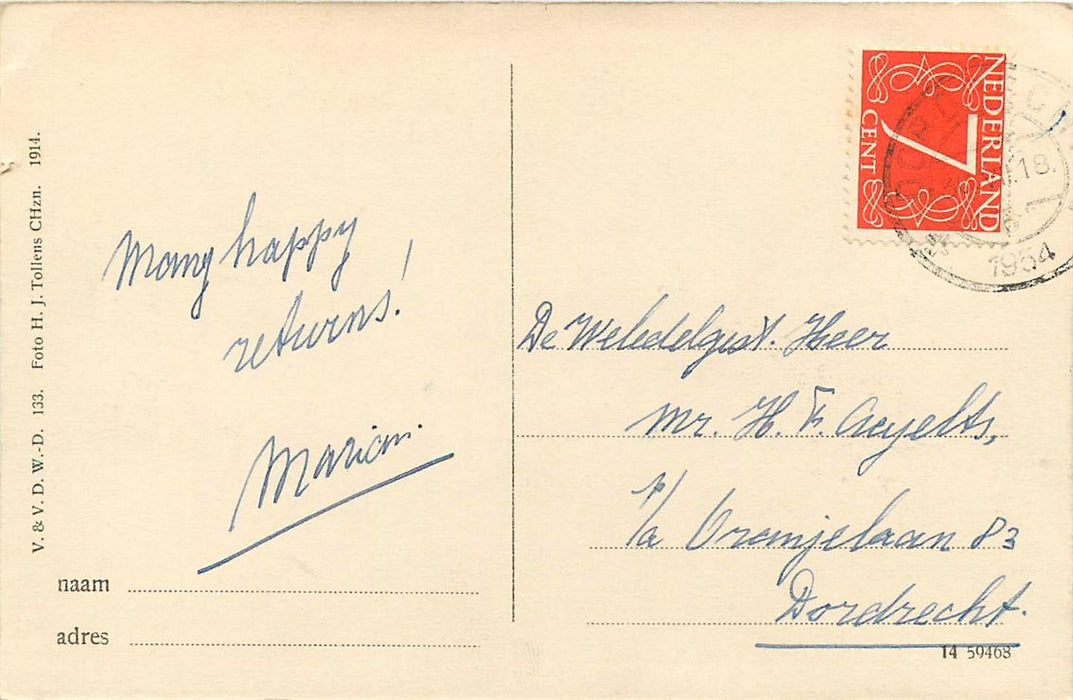 V. & V. D. W.-D. 133. Foto H. J. Tollens CHzn. 1914.
Many happy
returns!
Marian.
naam
adres
NEDERLAND
7
CENT
18.
1954
De Weledelgest. Heer
Mr. H. F.
p/a Oranjelaan 83
Dordrecht.
14 59468